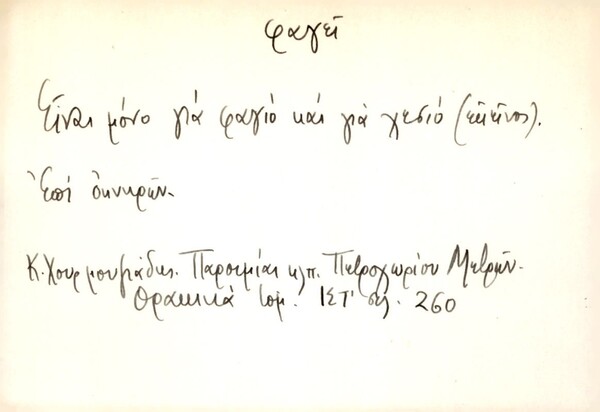 φαγεῖ
Εἶναι μόνο γιὰ φαγιό καί γιὰ χεσιό (ἐκεῖνος).
Ἐπί ὀκνηρῶν.
Κ. Χουρμουζιάδης. Παροιμίαι κλπ. Πετροχωρίου Μετρῶν.
Θρακικὰ τομ. ΙΣΤ' σελ. 260